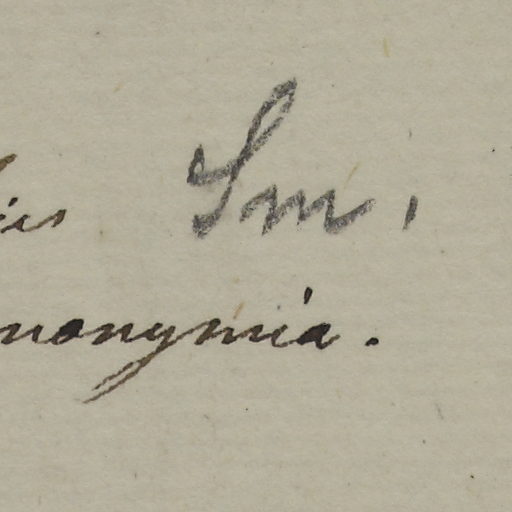 is Sm.
nonymia.